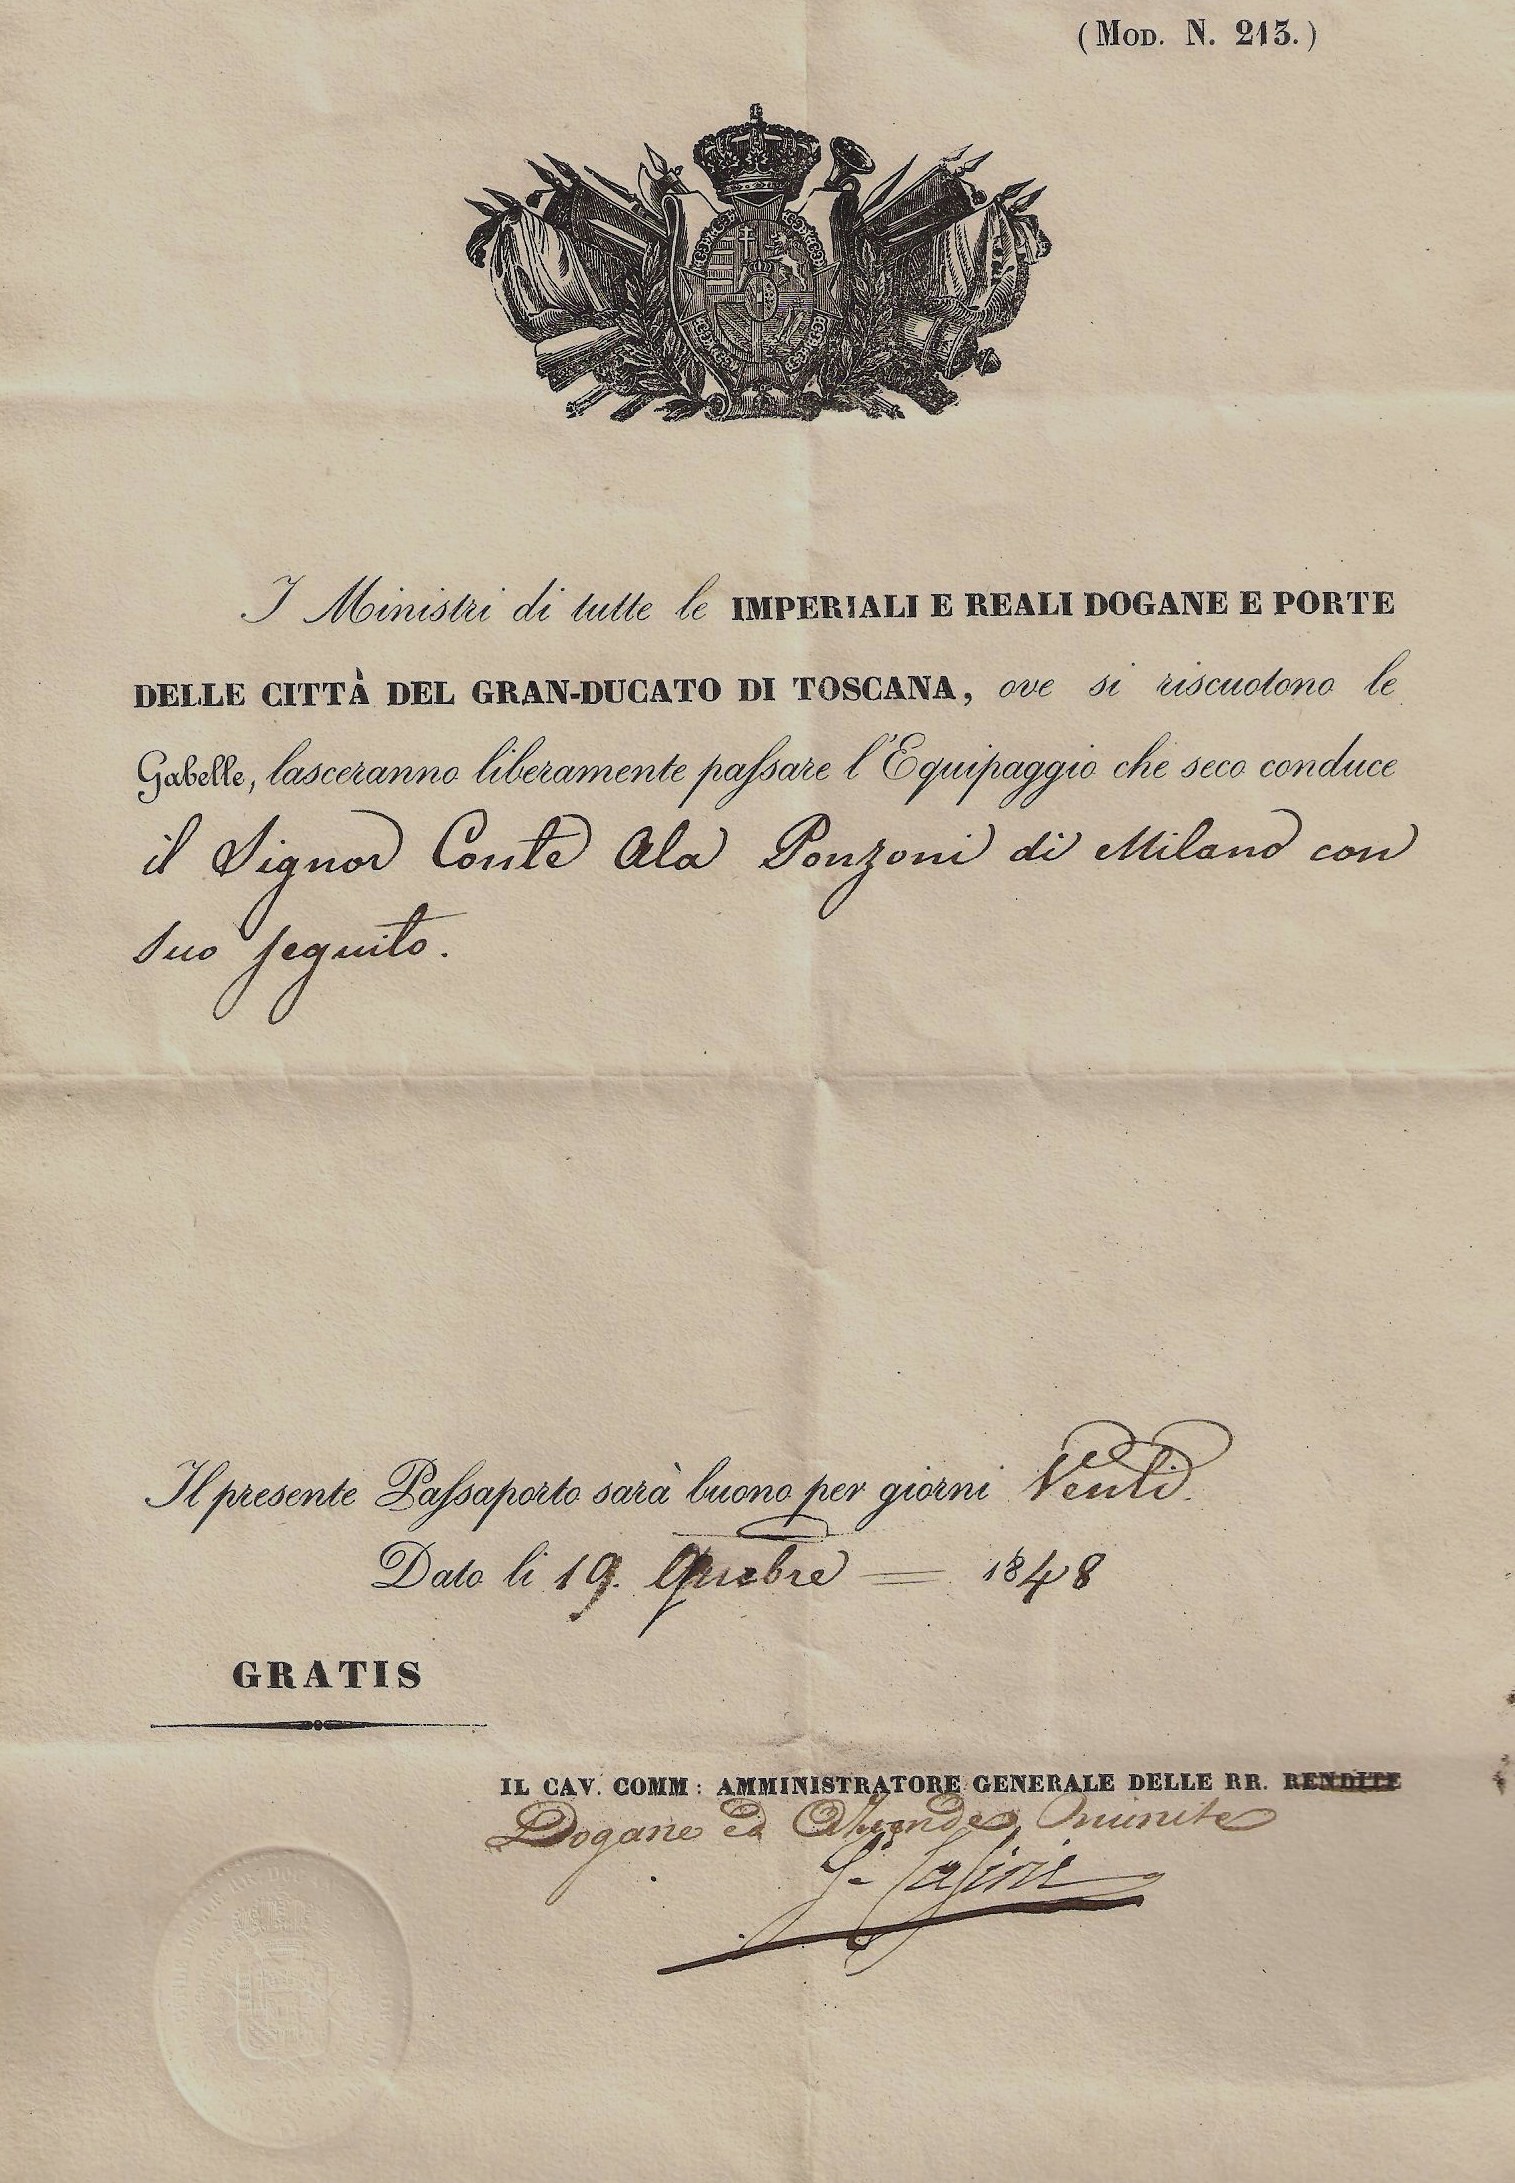 (MOD. N. 213.)
I Ministri di tutte le IMPERIALI E REALI DOGANE E PORTE
DELLE CITTÀ DEL GRAN-DUCATO DI TOSCANA, ove si riscuotono le
Gabelle, lasceranno liberamente paſsare l'Equipaggio che seco conduce
il Signor Conte Ala Ponzoni di Milano con
suo seguito.
Il presente Paſsaporto sarà buono per giorni Venti.
Dato li 19. 1848
GRATIS
IL CAV. COMM: AMMINISTRATORE GENERALE DELLE RR. RENDITE
Dogane ed Aziende riunite